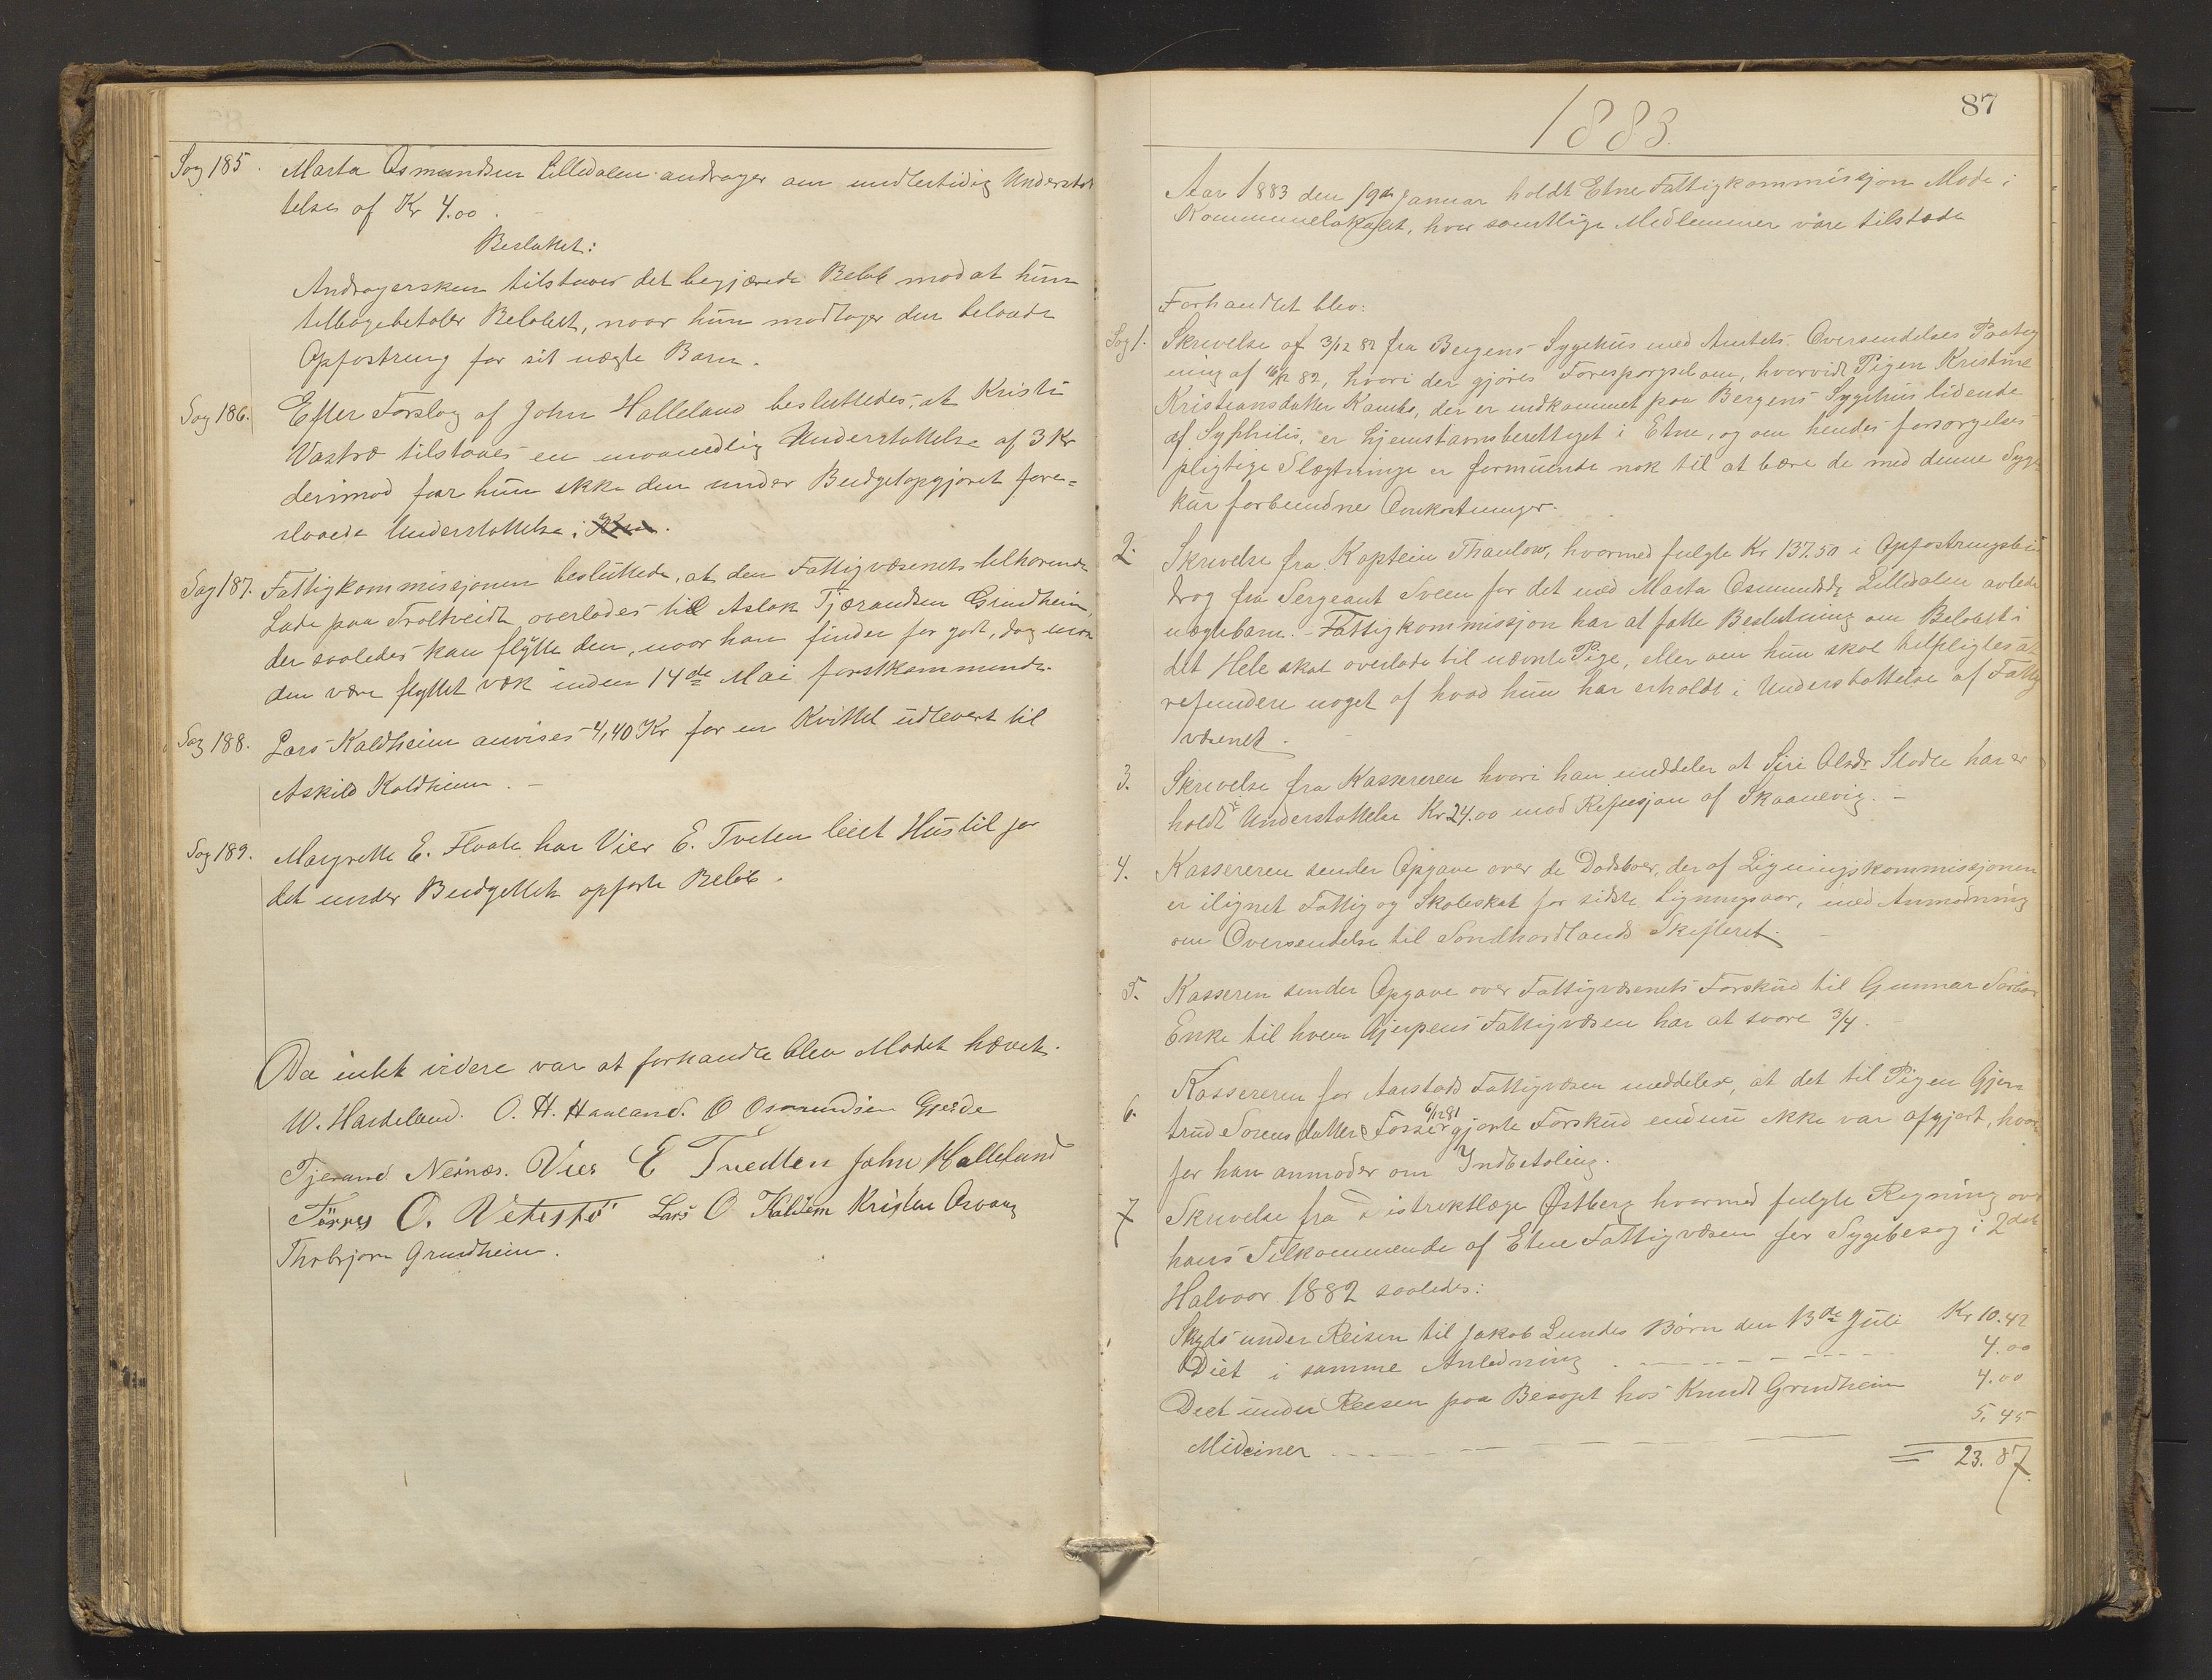 Sag 185. Marta Osmundsen Lilledalen andrager om midlertidig Understøt
telse af Kr 4.00.
Besluttet:
Andragersken tilstaaes det begjærede Beløb mod at hun
tilbagebetaler Beløbet, naar hun modtager den belovede
Opfostring for sit uægte Barn.
Sag 186. Efter Forslag af John Halleland besluttedes, at Kristi
Vastrø tilstaaes en maanedlig Understøttelse af 3 Kr
derimod faar hun ikke den under Budgetopgjøret fore-
slaaede Understøttelse.
Sag 187. Fattigkommissjonen besluttede, at den Fattigvæsenets tilhørende
Lade paa Troltveidt overlades til Aslak Tjærandsen Grindheim,
der saaledes kan flytte den, naar han finder for godt, dog maa
den være flyttet væk inden 14de Mai førstkommende.
Sag 188. Lars Kaldheim anvises 4,40 Kr for en Kvittel udlevert til
Askild Kaldheim. –
Sag 189. Margrette E. Flaate har Vier E. Tveten leiet Hus til for
det under Budgettet opførte Beløb.
Da intet videre var at forhandle blev Mødet hævet.
W. Hardeland. O. H. Haaland. O Osmundsen Gjerde
Tjerand Neinæs. Vier E Tvedten John Halleland
Tørres O. Vetestø Lars O Kaldem Kristen Orvang
Thorbjørn Grindheim.
87
1883.
Aar 1883 den 19de Januar holdt Etne Fattigkommissjon Møde i
Kommunelokalet, hvor samtlige Medlemmer vare tilstede
Forhandlet blev:
Sag 1. Skrivelse af 3/12 82 fra Bergens Sygehus med Amtets Oversendelses Paateg
ning af 16/12 82, hvori der gjøres Forespørgsel om, hvorvidt Pigen Kristine
Kristiansdatter Kambo, der er indkommet paa Bergens Sygehus lidende
af Syphilis, er hjemstavnsberettiget i Etne, og om hendes forsørgelses
pligtige Slægtninge er formuende nok til at bære de med denne Syge
kur forbundne Omkostninger.
2. Skrivelse fra Kaptein Thaulow, hvormed fulgte Kr 137.50 i Opfostringsbi
drag fra Sergeant Sveen for det med Marta Osmundsdr Lilledalen avlede
uægtebarn. – Fattigkommissjon har at fatte Beslutning om Beløbet i
det Hele skal overlade til nævnte Pige, eller om hun skal tilpligtes at
refundere noget af hvad hun har erholdt i Understøttelse af Fattig
væsenet.
3. Skrivelse fra Kassereren hvori han meddeler at Siri Olsdr Sladte har er
holdt Understøttelse Kr 24.00 mod Refusjon af Skaanevig. –
4. Kassereren sender Opgave over de Dødsboer, der af Ligningskommissjonen
er ilignet Fattig og Skoleskat for sidste Ligningsaar, med Anmodning
om Oversendelse til Søndhordlands Skifteret. –
5. Kasseren sender Opgave over Fattigvæsenets Forskud til Gunnar
Enke til hvem Gjerpens Fattigvæsen har at svare 3/4.
6. Kassereren for Aarstads Fattigvæsen meddeler, at det til Pigen Gjer
trud Sørensdatter Fosse 6/12 81 gjorte Forskud endnu ikke var afgjort, hvor
for han anmoder om Indbetaling.
7 Skrivelse fra Distriktlæge Østberg hvormed fulgte Regning over
hans Tilkommende af Etne Fattigvæsen for Sygebesøg i 2det
Halvaar 1882 saaledes:
Skyds under Reisen til Jakob Lundes Børn den 13de Juli Kr 10.42
Diet i samme Anledning . – – – – – – – – 4.00
Diet under Reisen paa Besøget hos Knudt Grindheim 4.00
Midciner – – – – – – – 5.45
= 23.87.